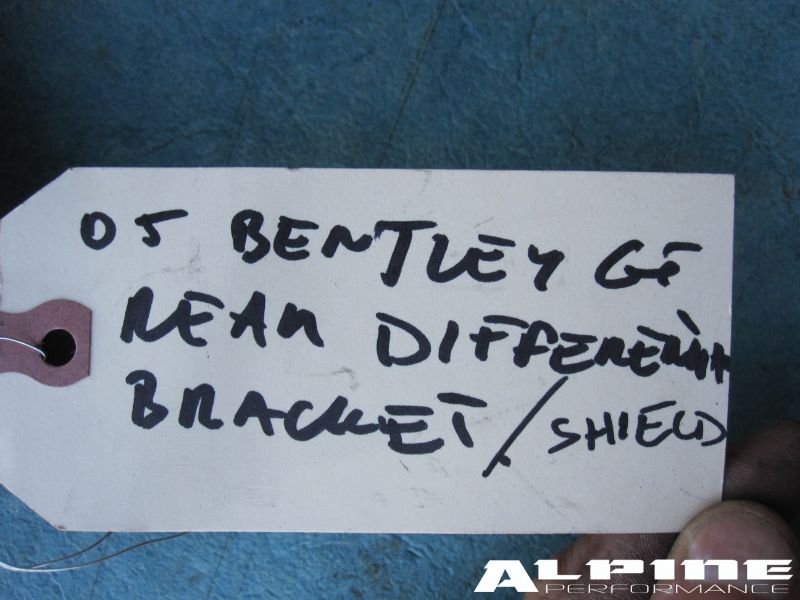 05 BENTLEY GT
REAR DIFFERENTIAL
BRACKET / SHIELD
ALPINE
PERFORMANCE